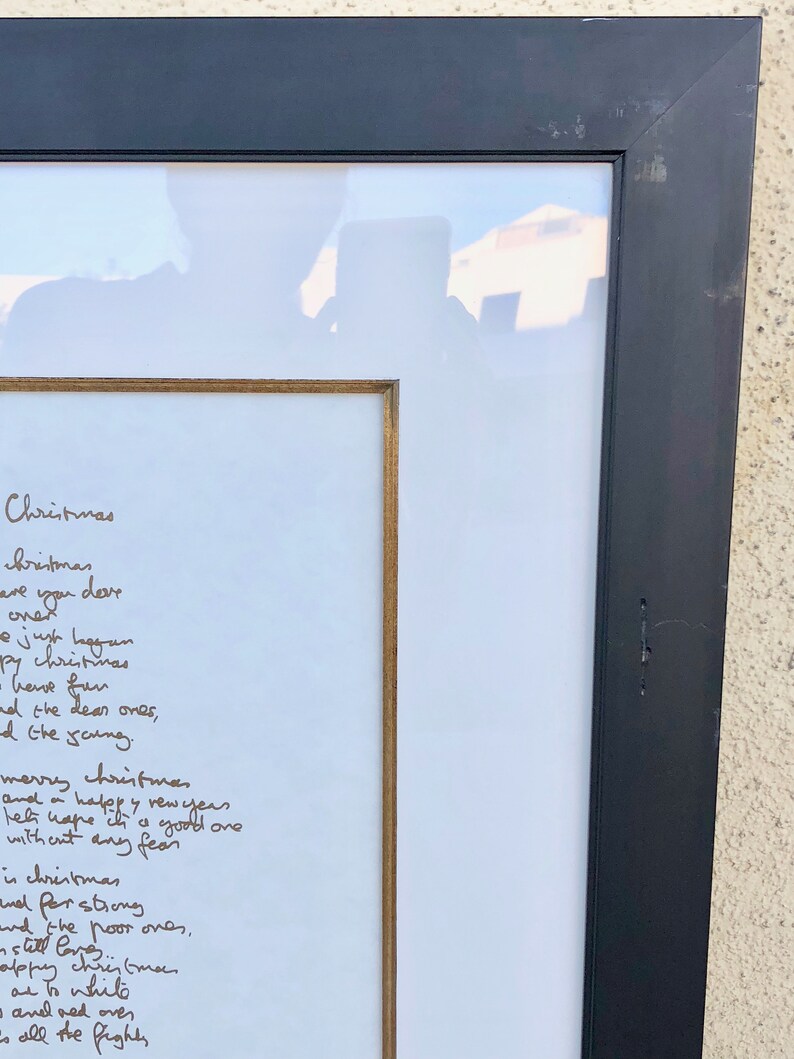 Christmas
christmas
ave you done
over
e just begun
py christmas
have fun
nd the dear ones,
d the young.
merry christmas
and a happy new year
lets hope it's a good one
without any fear
is christmas
and for strong
and the poor ones,
still long
appy christmas
to white
and red ones
all the fights